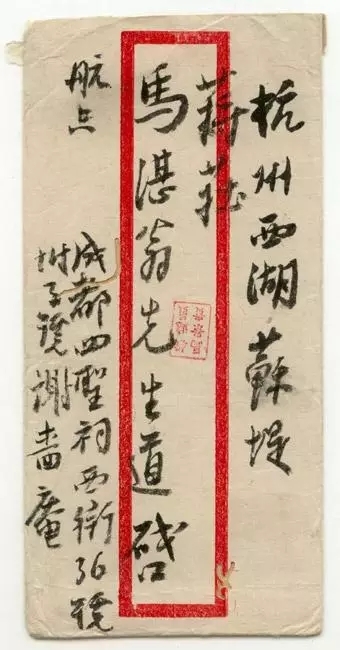 杭州西湖蘇堤
蔣莊
馬湛翁先生道啓
航空
成都四聖祠西街36號
坿3號謝嗇庵